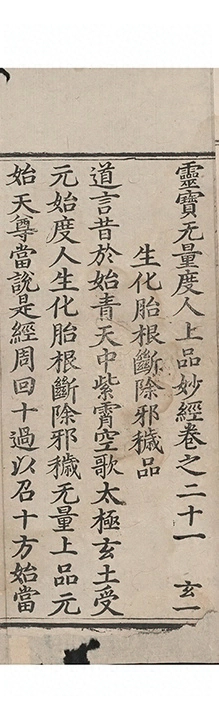 靈寶无量度人上品妙經卷之二十一 玄一
生化胎根斷除邪穢品
道言昔於始青天中紫霄空歌太極玄土受
元始度人生化胎根斷除邪穢无量上品元
始天尊當說是經周回十過以召十方始當